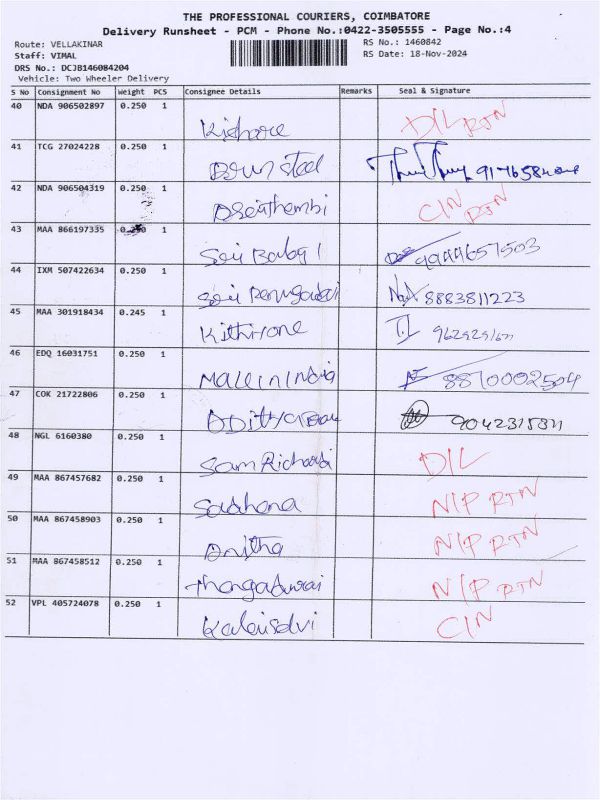 THE PROFESSIONAL COURIERS, COIMBATORE
Delivery Runsheet - PCM - Phone No.:0422-3505555 - Page No.:4
Route: VELLAKINAR RS No.: 1460842
Staff: VIMAL RS Date: 18-Nov-2024
DRS No.: DCJB146084204
Vehicle: Two Wheeler Delivery
S No Consignment No Weight PCS Consignee Details Remarks Seal & Signature
40 NDA 906502897 0.250 1
Kishore DIL RTN
41 TCG 27024228 0.250 1
Steel
42 NDA 906504319 0.250 1
CIN RTN
43 MAA 866197335 0.250 1
Sri Baby 1 9944657503
44 IXM 507422634 0.250 1
Sri 8883811223
45 MAA 301918434 0.245 1
46 EDQ 16031751 0.250 1
India 8870002504
47 COK 21722806 0.250 1
48 NGL 6160380 0.250 1
Sam Richard DIL
49 MAA 867457682 0.250 1
Sadhana N/P RTN
50 MAA 867458903 0.250 1
Anitha N/P RTN
51 MAA 867458512 0.250 1
Thangadurai N/P RTN
52 VPL 405724078 0.250 1
Kalaiselvi CIN